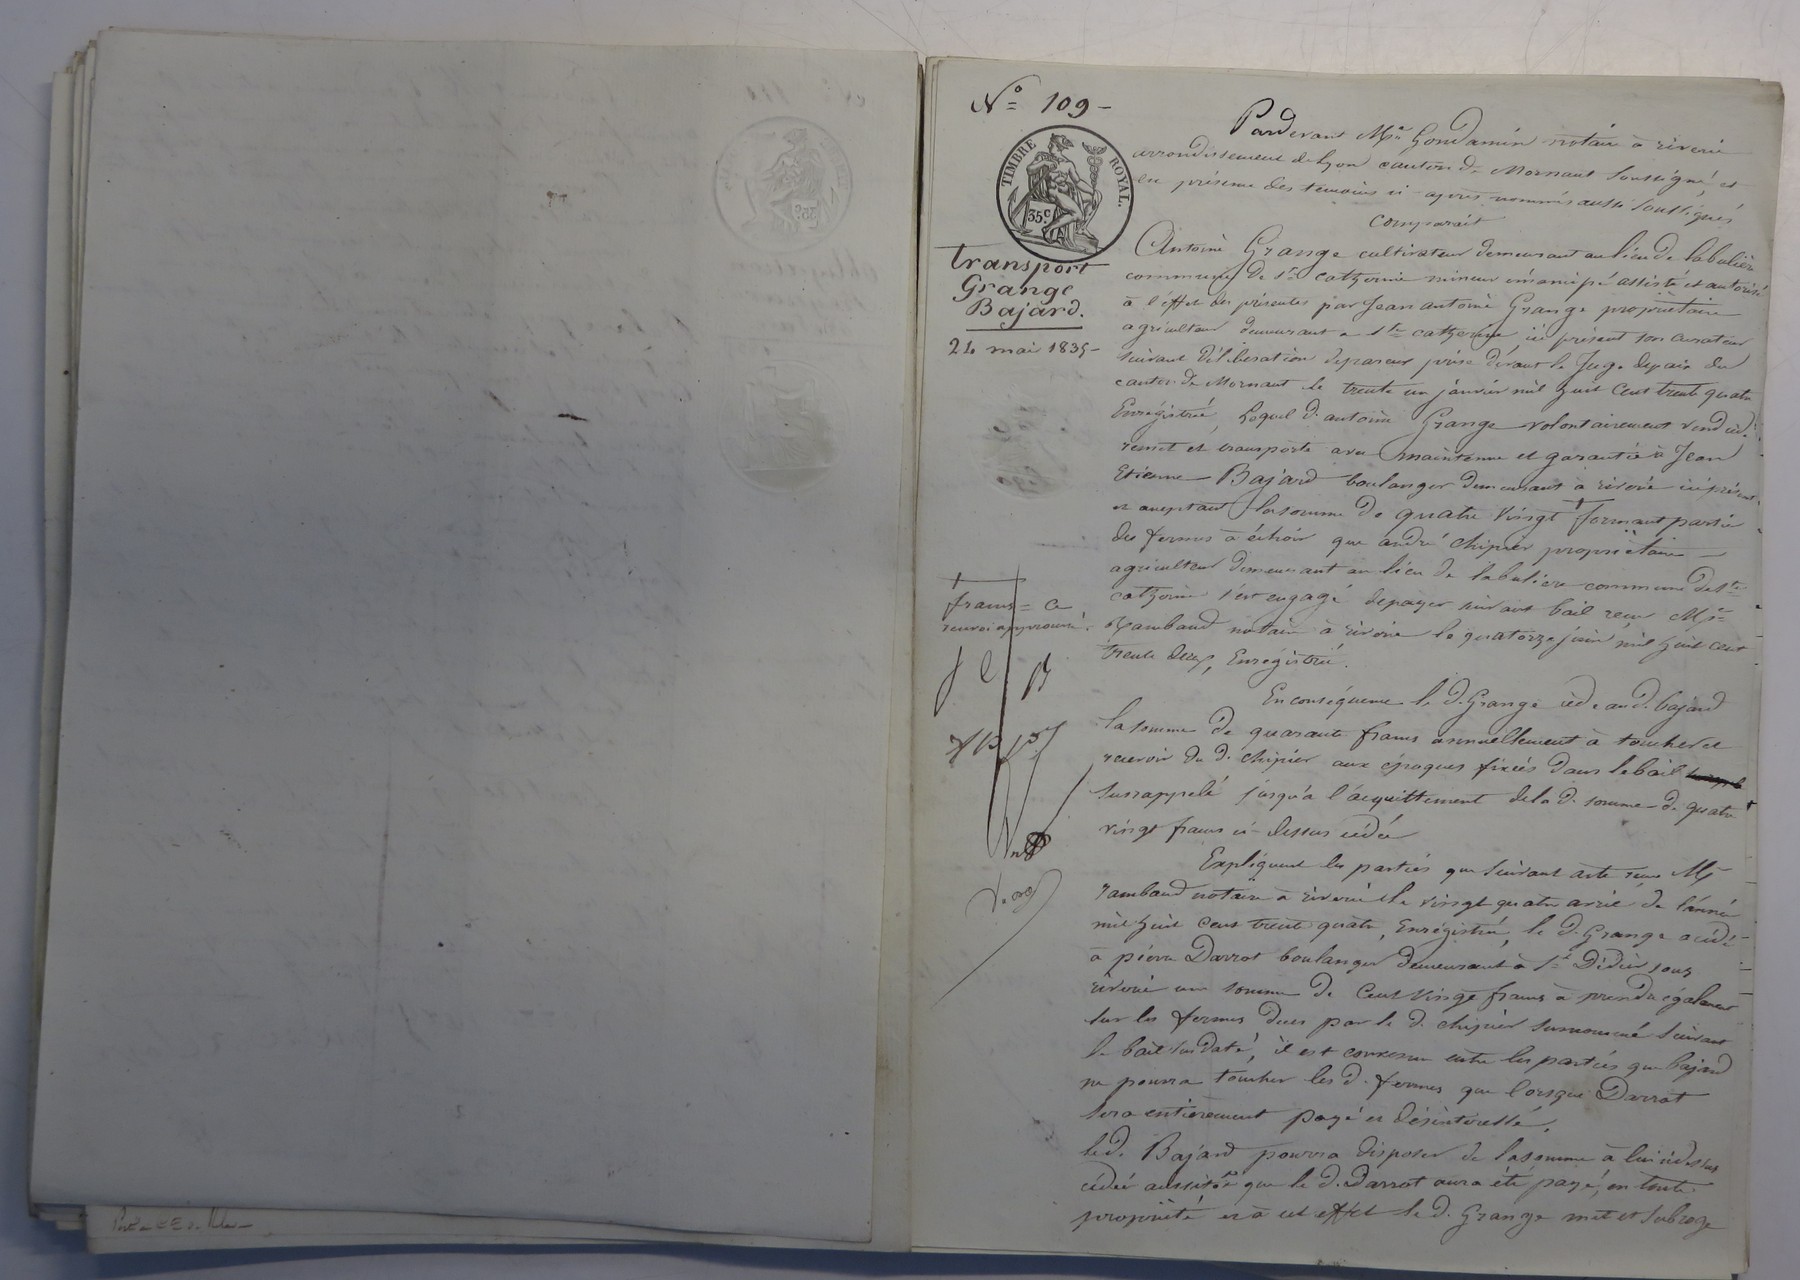 N° 109 -
TIMBRE ROYAL.
35 c.
transport
Grange
Bajard.
24 mai 1835 -
Pardevant Me Gondamin notaire à riverie
arrondissement de Lyon canton de Mornant soussigné, et
en présence des temoins ci-après nommés aussi soussignés
comparait
Antoine Grange cultivateur demeurant au lieu de labulière
commune de Ste catherine mineur émancipé assisté et autorisé
à l'effet des présentes par Jean antoine Grange propriétaire
agriculteur demeurant a Ste catherine, ici présent son curateur
suivant délibération deparens prise devant le Juge depaix du
canton de Mornant le trente un janvier mil huit cent trente quatre
Enregistrée, Lequel d. antoine Grange volontairement vend cède
remet et transporte avec maintenue et garantie à Jean
Etienne Bajard boulanger demeurant à riverie ici présent
et acceptant la somme de quatre vingt † formant partie
des fermes à échoir que andré chipier propriétaire —
agriculteur demeurant au lieu de labulière commune de Ste
catherine s'est engagé depayer suivant bail reçu Me
rambaud notaire à riverie le quatorze juin mil huit cent
trente deux, Enregistré.
† francs = ce
renvoi approuvé.
En conséquence le d. Grange cède au d. bajard
la somme de quarante francs annuellement à toucher et
recevoir du d. chipier aux époques fixées dans le bail
susrappelé jusqu'a l'acquittement de la d. somme de quatre
vingt francs ci-dessus cédée
Expliquent les parties que suivant acte reçu Me
rambaud notaire à riverie le vingt quatre avril de l'année
mil huit cent trente quatre, Enregistré, le d. Grange a cédé
à pierre Darrot boulanger demeurant à St Didier sous
riverie une somme de Cent vingt francs à prendre également
sur les fermes dues par le d. chipier surnommé suivant
le bail susdaté, il est convenu entre les parties que bajard
ne pourra toucher les d. fermes que lorsque Darrot
sera entièrement payé et désintéressé.
le d. Bajard pourra disposer de la somme à lui cidessus
cédée aussitôt que le d. Darrot aura été payé, en toute
propriété et à cet effet le d. Grange met et subroge